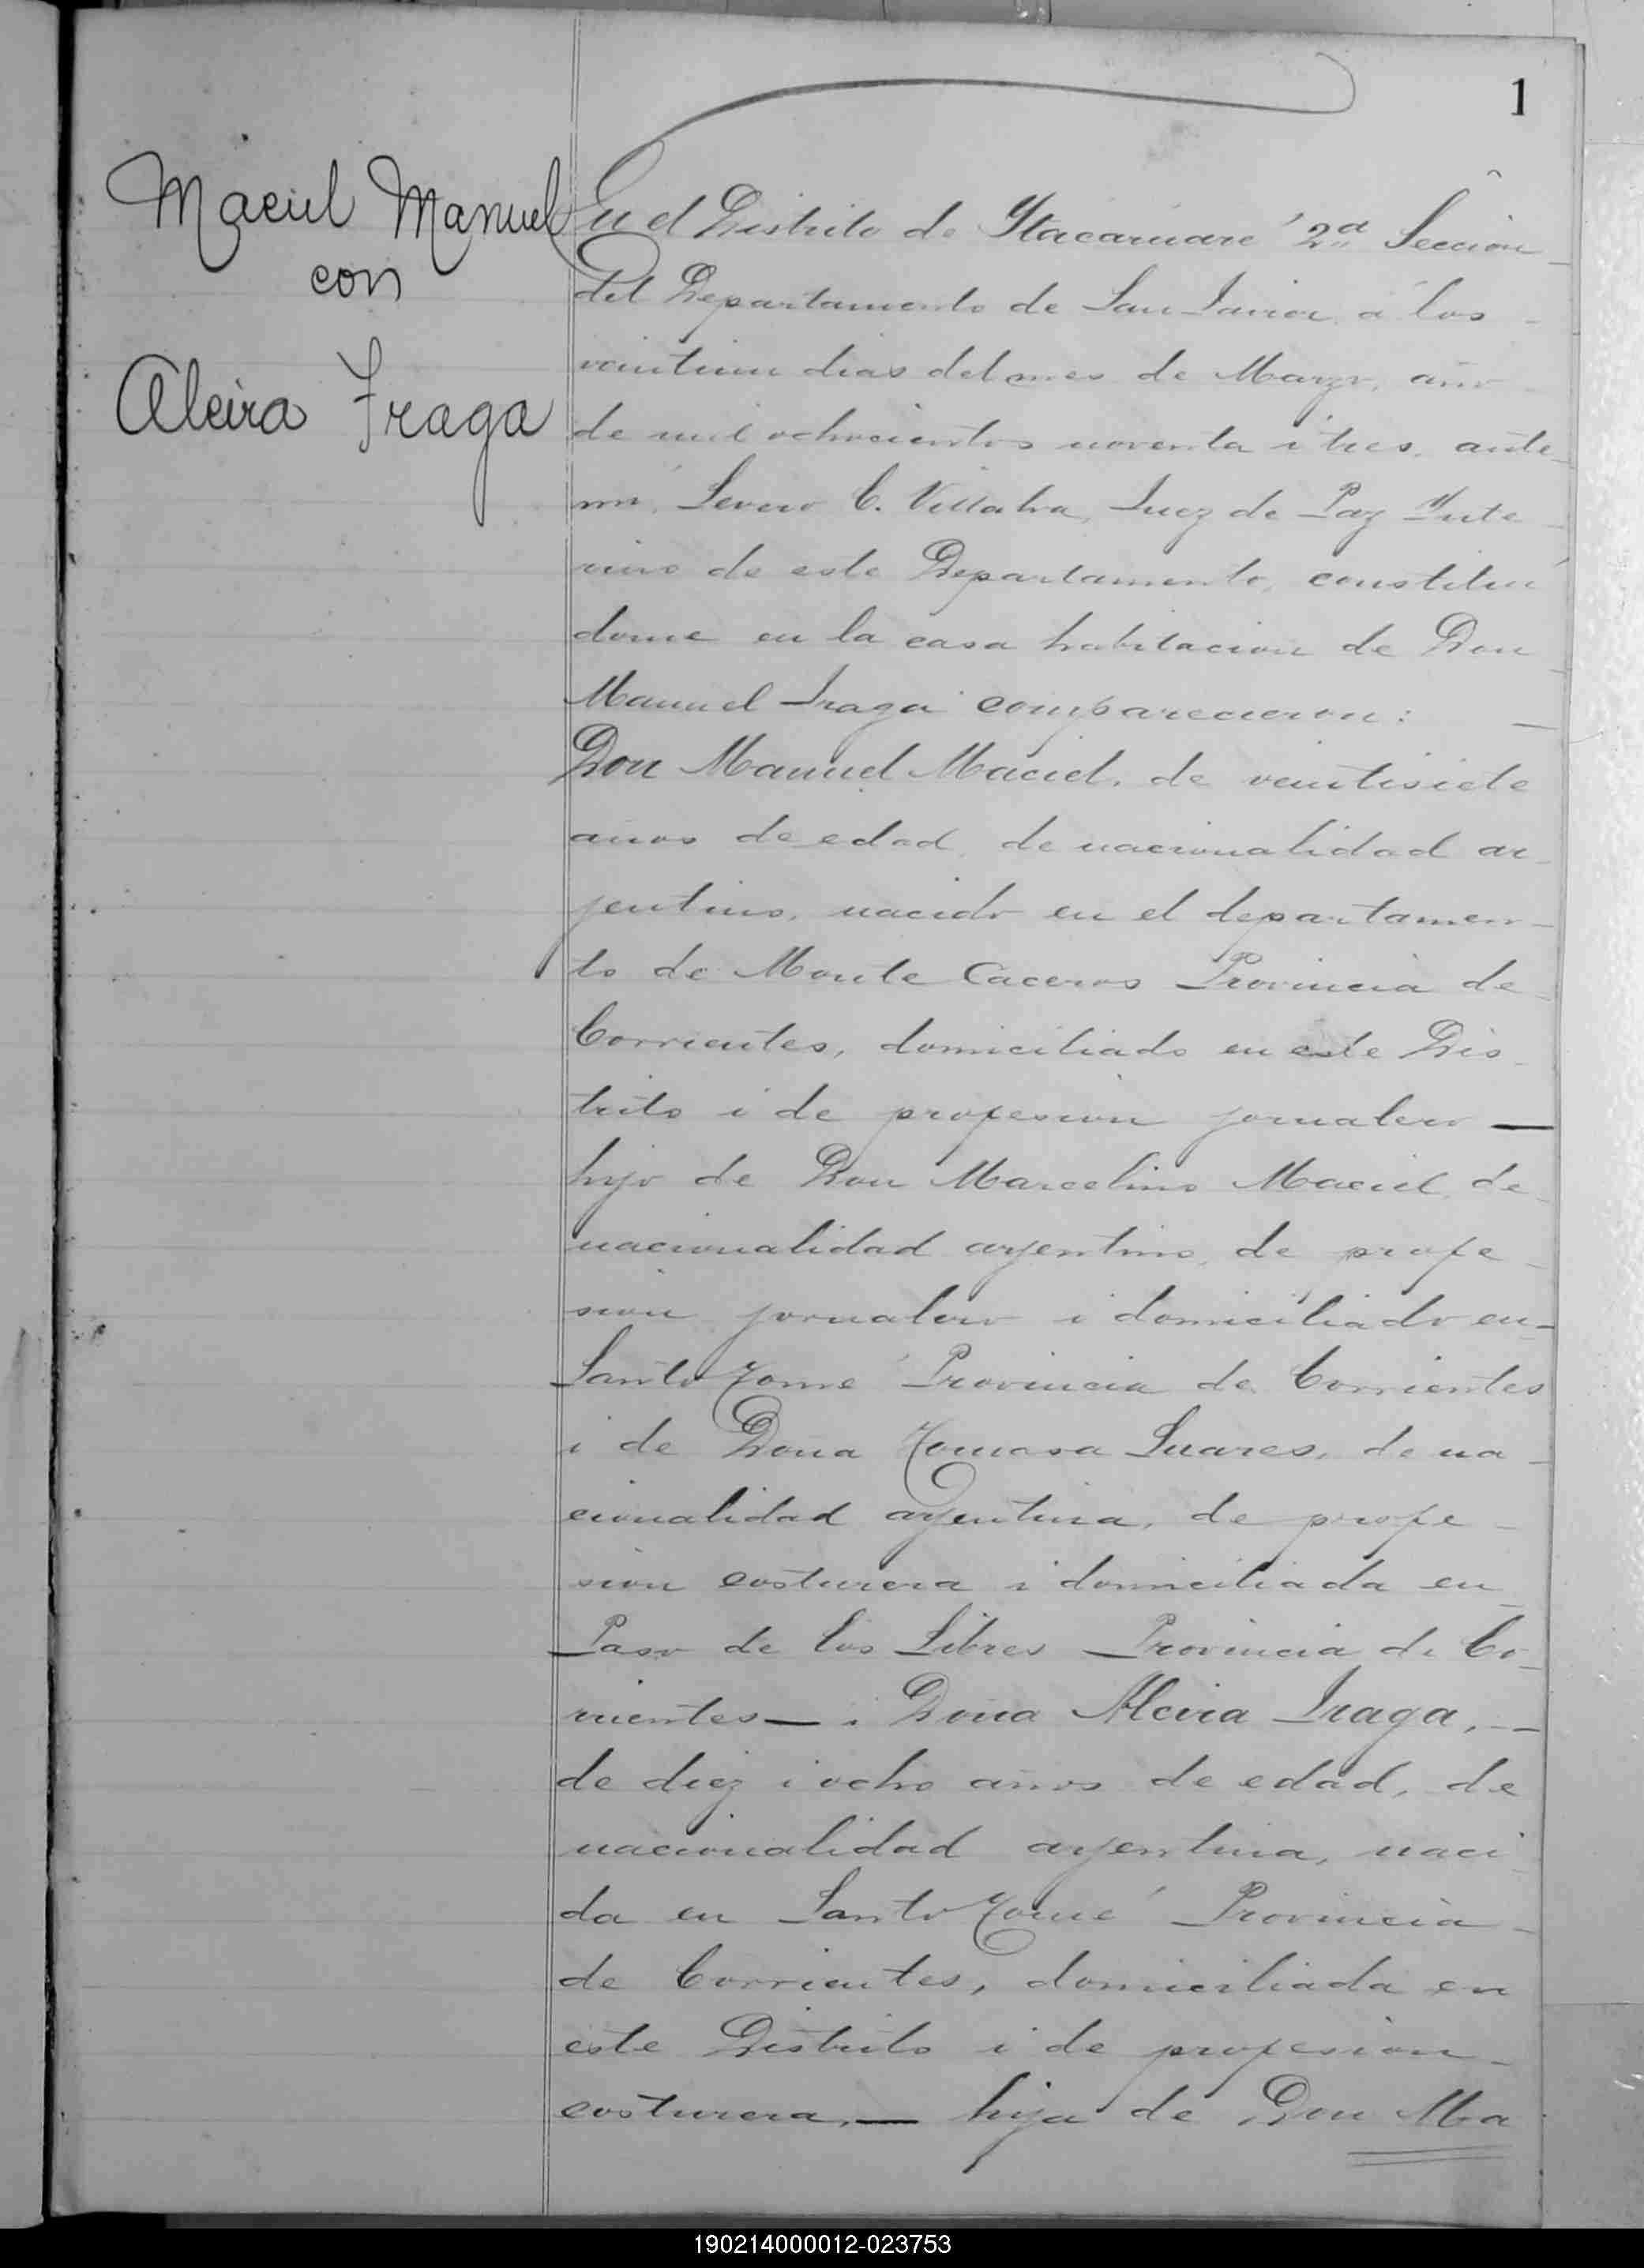 1
Maciel Manuel
con
Alcira Fraga
En el Distrito de Itacaruaré 2ª Seccion
del Departamento de San Javier, á los
veintiun dias del mes de Marzo, año
de mil ochocientos noventa i tres, ante
mi, Severo C. Villalva, Juez de Paz Inte
rino de este Departamento, constitui
dome en la casa habitacion de Don
Manuel Fraga comparecieron: —
Don Manuel Maciel, de veintisiete
años de edad, de nacionalidad ar
jentino, nacido en el departamen-
to de Monte Caceros Provincia de
Corrientes, domiciliado en este Dis
trito i de profesion jornalero —
hijo de Don Marcelino Maciel, de
nacionalidad arjentino, de profe-
sion jornalero i domiciliado en-
Santo Tomé Provincia de Corrientes
i de Doña Tomasa Suares, de na-
cionalidad arjentina, de profe-
sion costurera i domiciliada en
Paso de los Libres Provincia de Co-
rrientes — i Doña Alcira Fraga, —
de diez i ocho años de edad, de
nacionalidad arjentina, naci
da en Santo Tomé Provincia
de Corrientes, domiciliada en
este Distrito i de profesion-
costurera, — hija de Don Ma
190214000012-023753